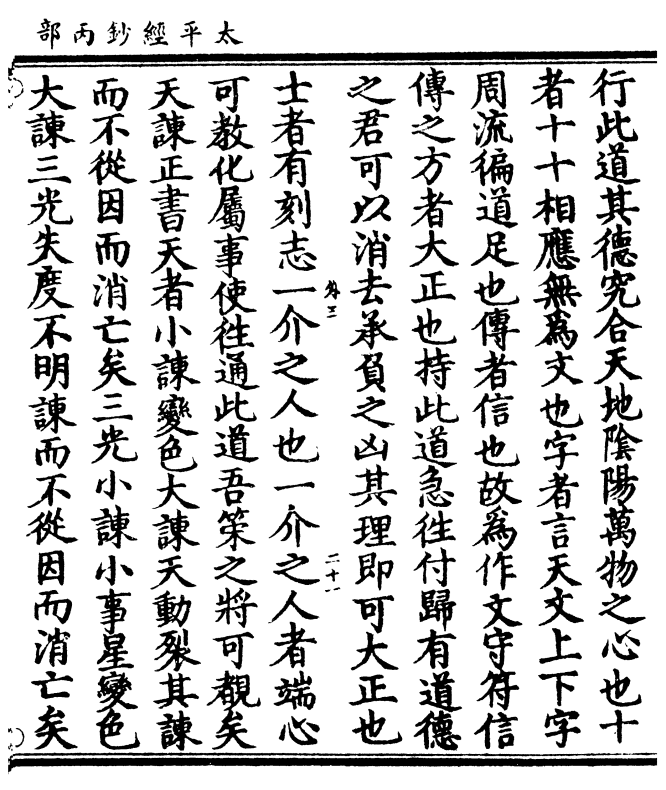 太平經鈔丙部
行此道其德究合天地陰陽萬物之心也十
者十十相應無爲文也字者言天文上下字
周流徧道足也傳者信也故爲作文守符信
傳之方者大正也持此道急徃付歸有道德
之君可以消去承負之凶其理即可大正也
卷三 二十一
士者有刻志一介之人也一介之人者端心
可教化屬事使徃通此道吾策之將可覩矣
天諫正書天者小諫變色大諫天動裂其諫
而不從因而消亡矣三光小諫小事星變色
大諫三光失度不明諫而不從因而消亡矣